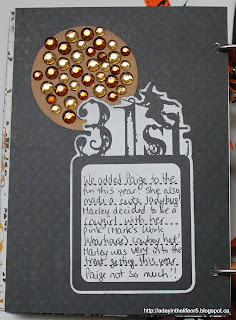 31st
We added Paige to the
fun this year! She also
made a cute ladybug!
Marley decided to be a
cowgirl with her...
pink (Mark's Work
Wearhouse) cowboy hat!
Marley was very into the
treat getting this year.
Paige not so much!!
http://adayinthelifeof5.blogspot.ca